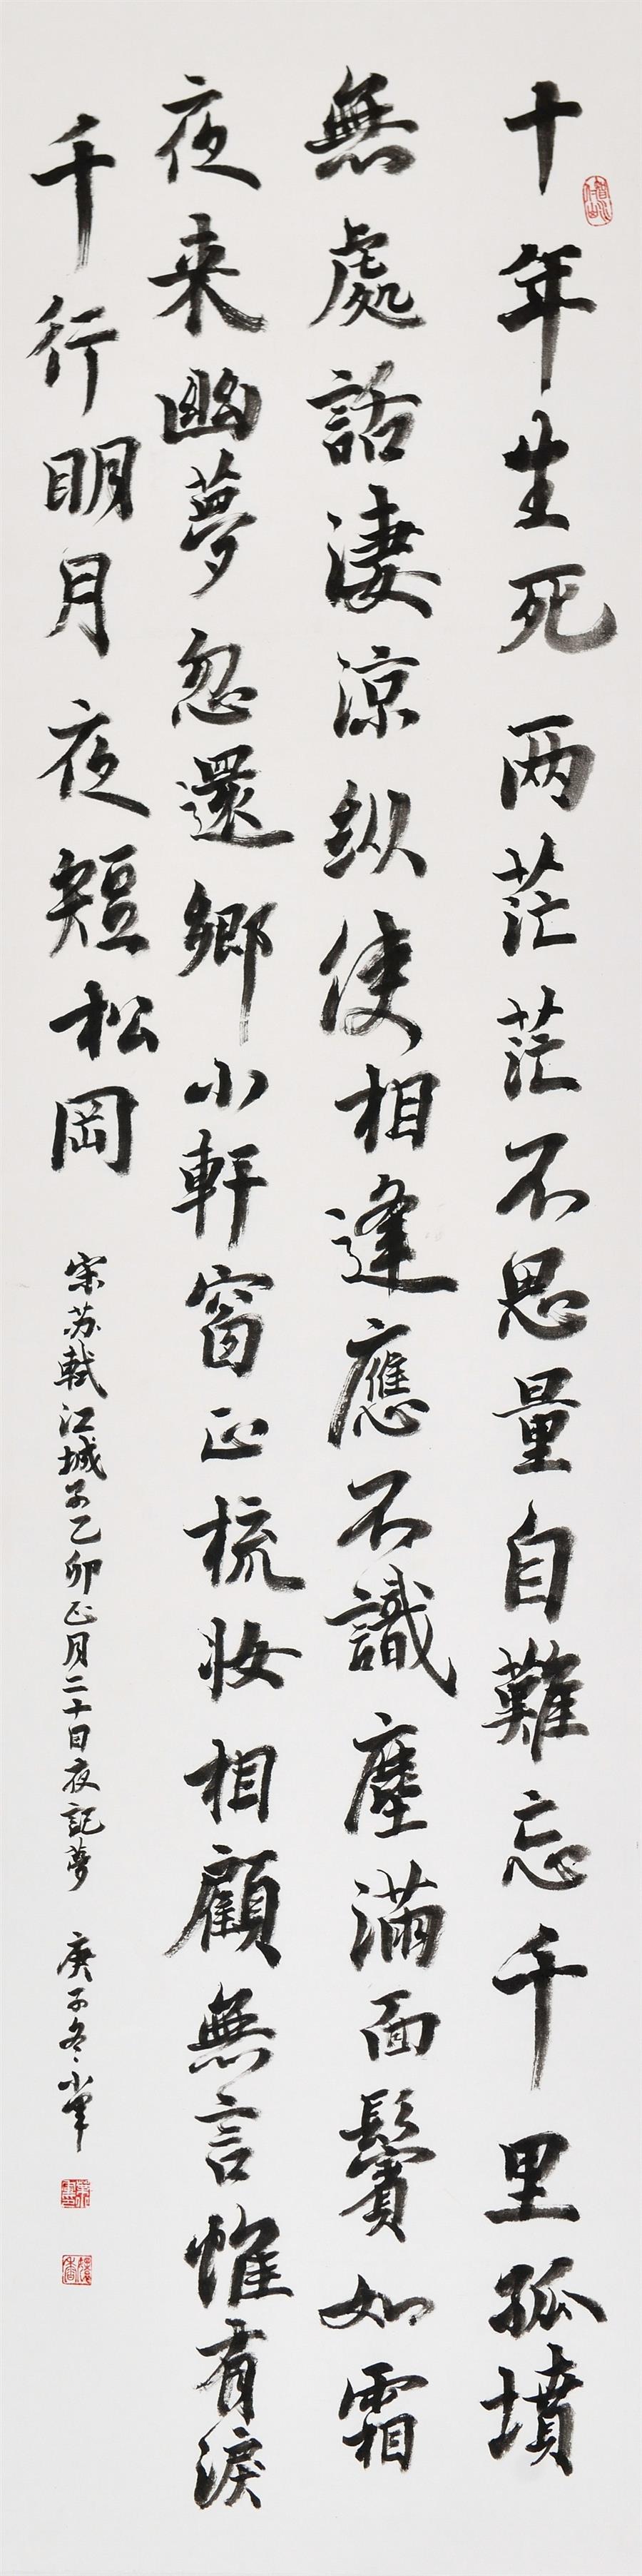 十年生死两茫茫不思量自難忘千里孤墳
無處話淒涼纵使相逢應不識塵滿面鬢如霜
夜来幽夢忽還鄉小軒窗正梳妆相顧無言惟有淚
千行明月夜短松岡
宋苏軾江城子乙卯正月二十日夜記夢 庚子冬